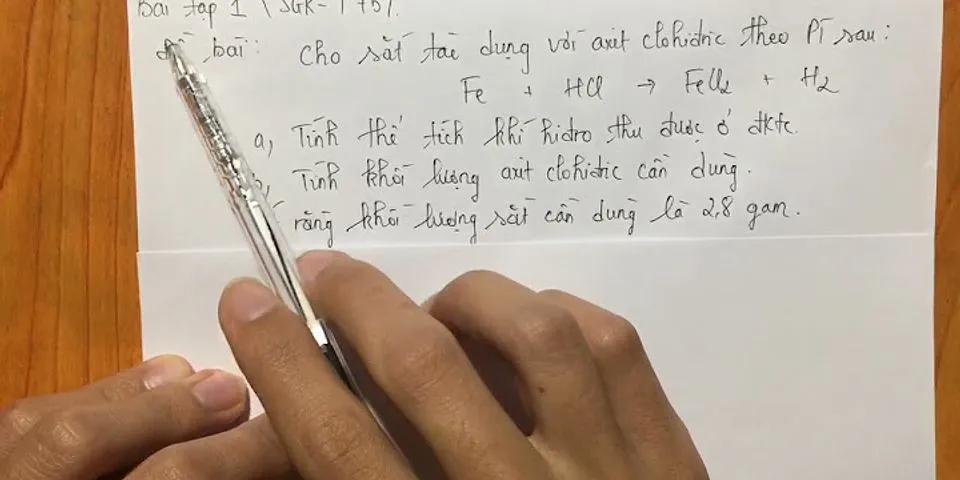 Bài tập 1 (SGK-T75).
đề bài: Cho sắt tác dụng với axit clohidric theo PT sau:
Fe + HCl → FeCl2 + H2
a, Tính thể tích khí hidro thu được ở đktc.
b, Tính khối lượng axit clohidric cần dùng.
rằng khối lượng sắt cần dùng là 2,8 gam.